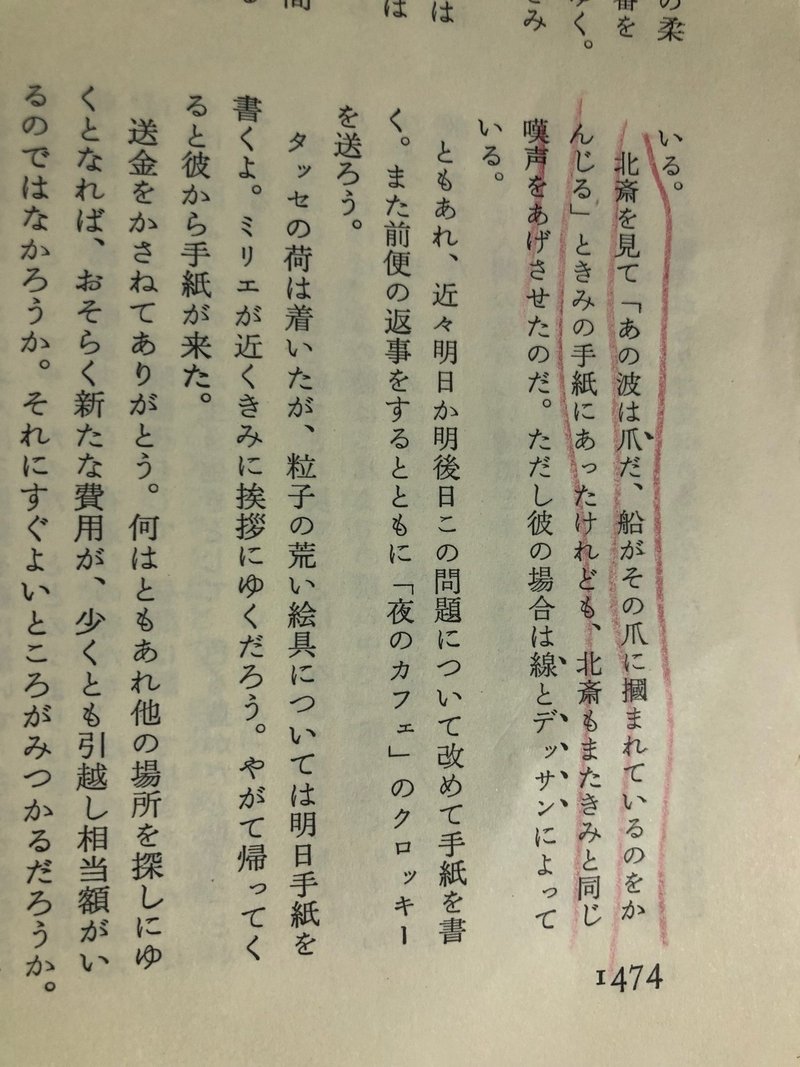 の柔
番を
ゆく。
きみ
は
は
間
いる。
北斎を見て「あの波は爪だ、船がその爪に摑まれているのをか
んじる」ときみの手紙にあったけれども、北斎もまたきみと同じ
嘆声をあげさせたのだ。ただし彼の場合は線とデッサンによって
いる。
ともあれ、近々明日か明後日この問題について改めて手紙を書
く。また前便の返事をするとともに「夜のカフェ」のクロッキー
を送ろう。
タッセの荷は着いたが、粒子の荒い絵具については明日手紙を
書くよ。ミリエが近くきみに挨拶にゆくだろう。やがて帰ってく
ると彼から手紙が来た。
送金をかさねてありがとう。何はともあれ他の場所を探しにゆ
くとなれば、おそらく新たな費用が、少くとも引越し相当額がい
るのではなかろうか。それにすぐよいところがみつかるだろうか。
1474